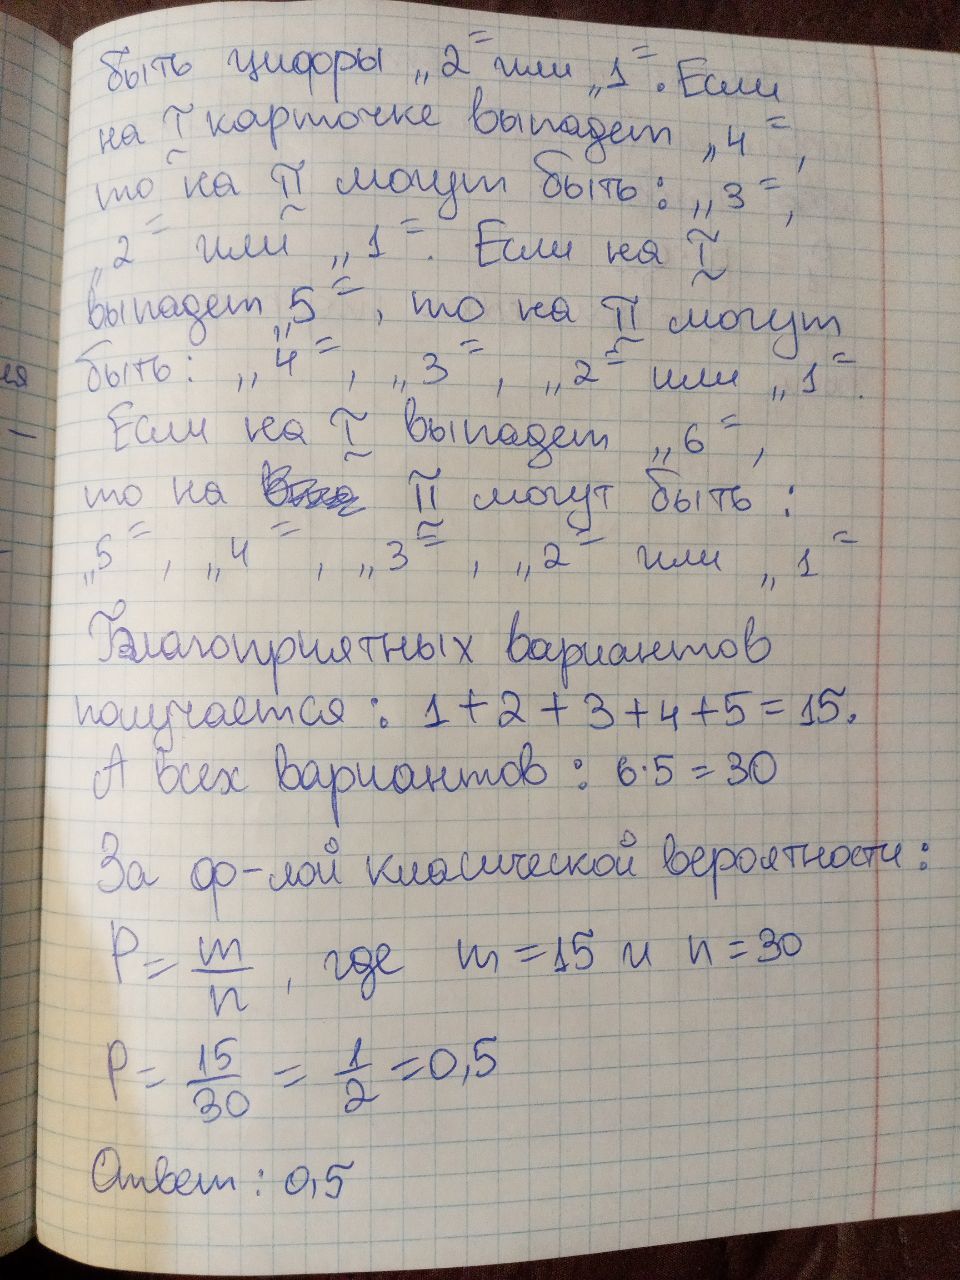 быть цифры „2" или „1". Если
на I карточке выпадет „4",
то на II могут быть: „3",
„2" или „1". Если на I
выпадет „5", то на II могут
быть: „4", „3", „2" или „1".
Если на I выпадет „6",
то на II могут быть:
„5", „4", „3", „2" или „1"
Благоприятных вариантов
получается: 1+2+3+4+5=15.
А всех вариантов: 6·5=30
За ф-лой класической вероятности:
P = m/n, где m=15 и n=30
P = 15/30 = 1/2 = 0,5
Ответ: 0,5